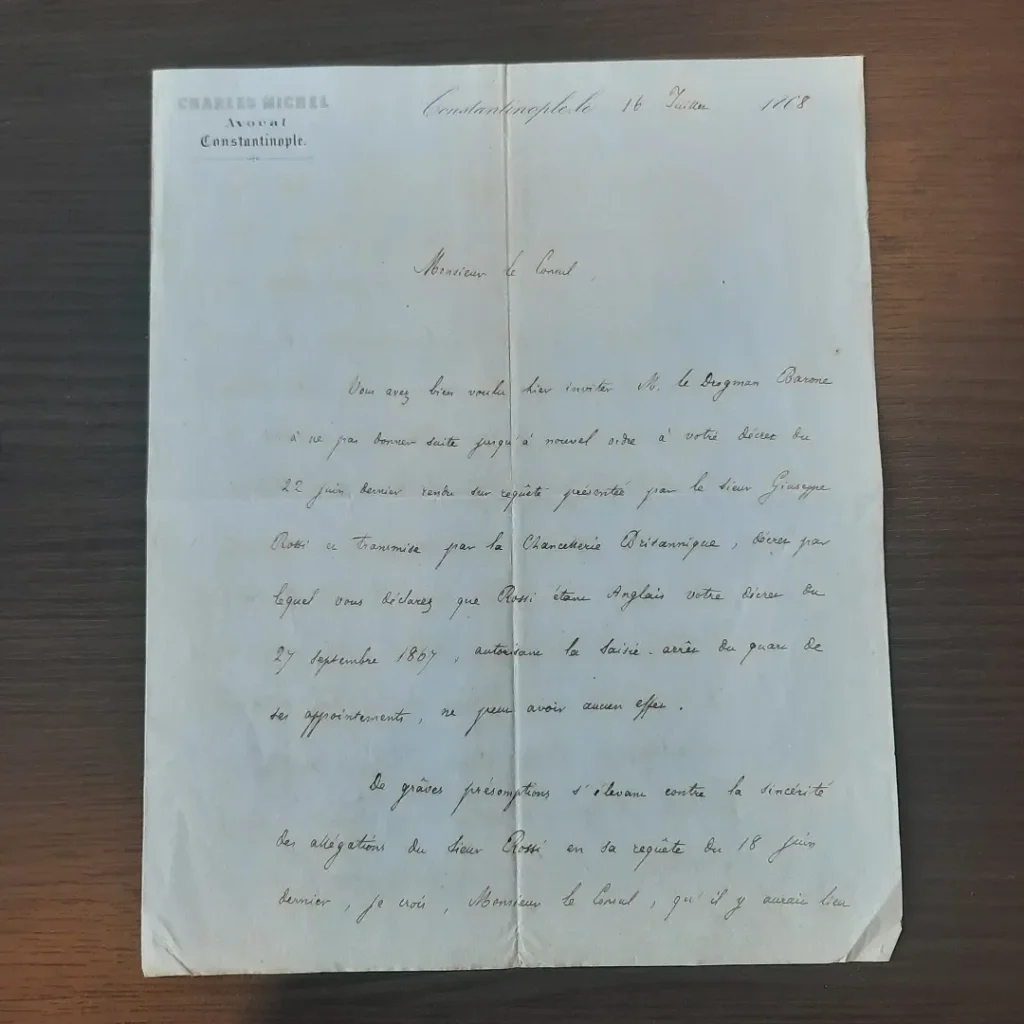 CHARLES MICHEL
Avocat
Constantinople.
Constantinople, le 16 Juillet 1868
Monsieur le Consul
Vous avez bien voulu hier inviter M. le Drogman Barone
à ne pas donner suite jusqu'à nouvel ordre à votre décret du
22 juin dernier rendu sur requête présentée par le sieur Giuseppe
Rossi et transmise par la Chancellerie Britannique, décret par
lequel vous déclarez que Rossi étant Anglais votre décret du
27 septembre 1867, autorisant la saisie-arrêt du quart de
ses appointements, ne peut avoir aucun effet.
De grâves présomptions s'élevant contre la sincérité
des allégations du Sieur Rossi en sa requête du 18 juin
dernier, je crois, Monsieur le Consul, qu'il y aurait lieu